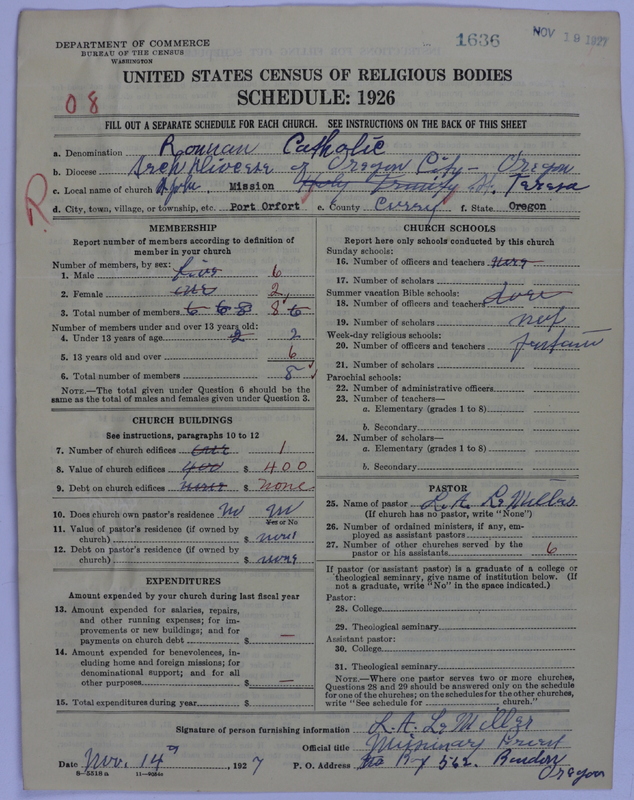 DEPARTMENT OF COMMERCE
BUREAU OF THE CENSUS
WASHINGTON
1636
NOV 19 1927
UNITED STATES CENSUS OF RELIGIOUS BODIES
SCHEDULE: 1926
08
FILL OUT A SEPARATE SCHEDULE FOR EACH CHURCH. SEE INSTRUCTIONS ON THE BACK OF THIS SHEET
a. Denomination Roman Catholic
b. Diocese Archdiocese of Oregon City - Oregon
R
c. Local name of church St. John Mission Holy Trinity St. Teresa
d. City, town, village, or township, etc. Port Orfort e. County Curry f. State Oregon
MEMBERSHIP
Report number of members according to definition of
member in your church
Number of members, by sex:
1. Male five 6
2. Female one 2
3. Total number of members 6 6 8 8 6
Number of members under and over 13 years old:
4. Under 13 years of age 2 2
5. 13 years old and over 6
6. Total number of members 8
NOTE.—The total given under Question 6 should be
same as the total of males and females given under Question 3.
CHURCH BUILDINGS
See instructions, paragraphs 10 to 12
7. Number of church edifices one 1
8. Value of church edifices 400 $ 400
9. Debt on church edifices none $ none
10. Does church own pastor's residence? No no
Yes or No
11. Value of pastor's residence (if owned by
church) $ none
12. Debt on pastor's residence (if owned by
church) $ none
EXPENDITURES
Amount expended by your church during last fiscal year
13. Amount expended for salaries, repairs,
and other running expenses; for im-
provements or new buildings; and for
payments on church debt $ —
14. Amount expended for benevolences, in-
cluding home and foreign missions; for
denominational support; and for all
other purposes $ —
15. Total expenditures during year $
CHURCH SCHOOLS
Report here only schools conducted by this church
Sunday schools:
16. Number of officers and teachers none
17. Number of scholars
Summer vacation Bible schools:
18. Number of officers and teachers does
19. Number of scholars not
Week-day religious schools:
20. Number of officers and teachers pertain
21. Number of scholars
Parochial schools:
22. Number of administrative officers
23. Number of teachers—
a. Elementary (grades 1 to 8)
b. Secondary
24. Number of scholars—
a. Elementary (grades 1 to 8)
b. Secondary
PASTOR
25. Name of pastor L. A. Le Miller
(If church has no pastor, write "None")
26. Number of ordained ministers, if any, em-
ployed as assistant pastors
27. Number of other churches served by the
pastor or his assistants 6
If pastor (or assistant pastor) is a graduate of a college or
theological seminary, give name of institution below. (If
not a graduate, write "No" in the space indicated.)
Pastor:
28. College
29. Theological seminary
Assistant pastor:
30. College
31. Theological seminary
NOTE.—Where one pastor serves two or more churches,
Questions 28 and 29 should be answered only on the schedule
for one of the churches; on the schedules for the other churches,
write "See schedule for church."
Signature of person furnishing information L. A. Le Miller
Official title Missionary Priest
Date Nov. 14th, 1927 P. O. Address Box 562. Bandon
Oregon
8—5318 a 11—9084a